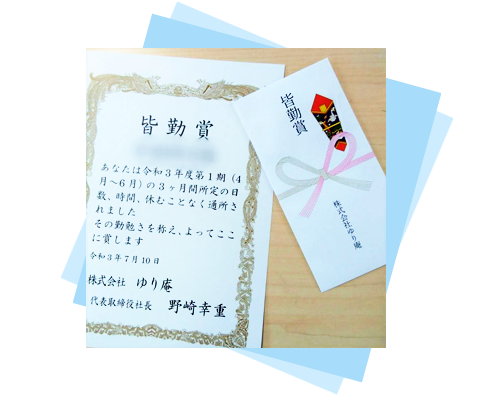 皆勤賞
あなたは令和3年度第1期（4
月～6月）の3ヶ月間所定の日
数、時間、休むことなく通所さ
れました
その勤勉さを称え、よってここ
に賞します
令和3年7月10日
株式会社 ゆり庵
代表取締役社長 野崎幸重
皆勤賞
株式会社ゆり庵